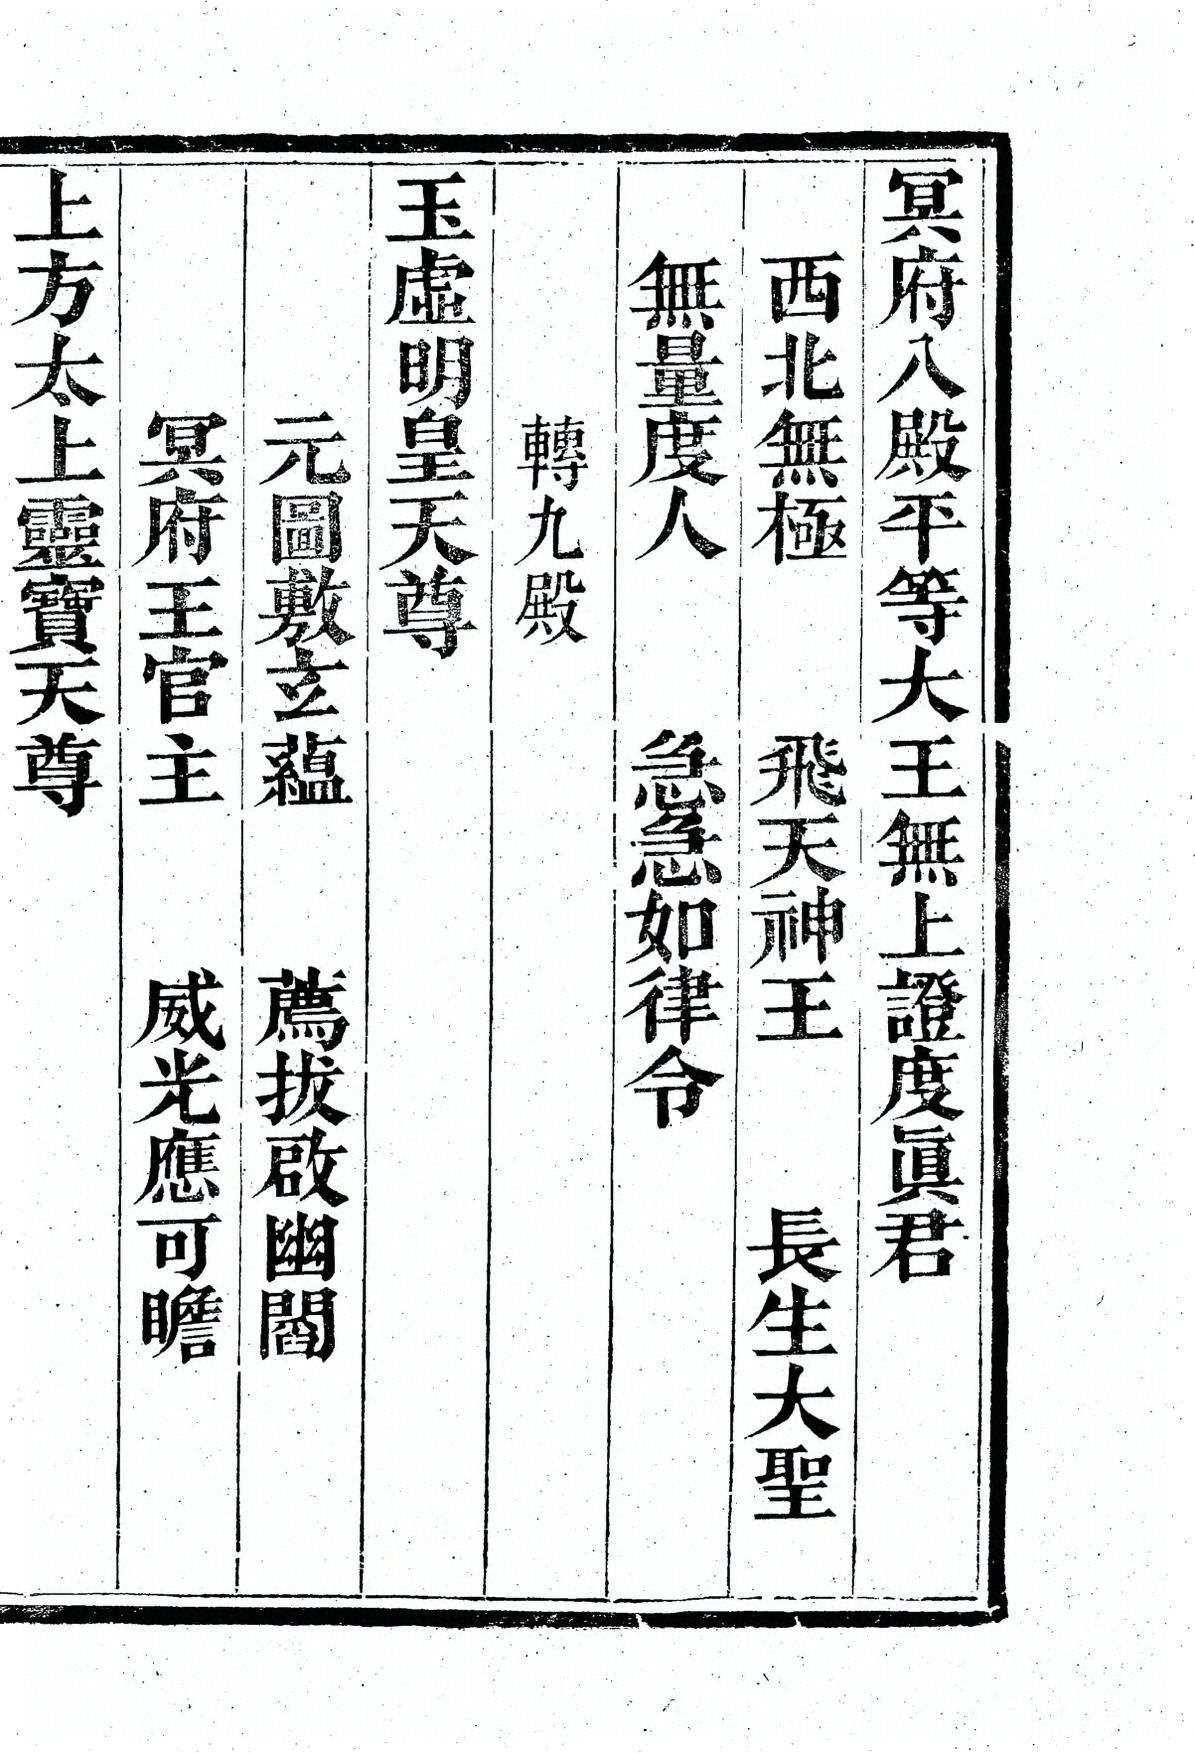 冥府八殿平等大王無上證度眞君
西北無極　飛天神王　長生大聖
無量度人　急急如律令
轉九殿
玉虛明皇天尊
元圖敷玄蘊　薦拔啟幽閻
冥府王官主　威光應可瞻
上方太上靈寶天尊